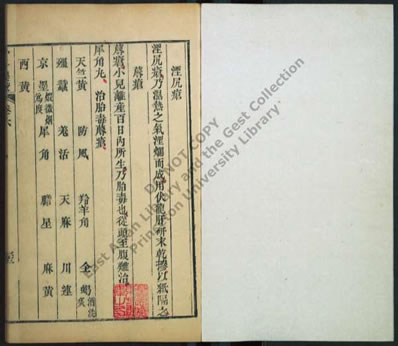 湮尻瘡
湮尻瘡乃濕熱之氣湮爛而成用伏龍肝研末乾摻以紙隔之
蓐瘡
蓐瘡小兒離産百日內所生乃胎毒也從頭至腹難治
犀角丸 治胎毒蓐瘡
天竺黃 防風 羚羊角 全蝎
殭蠶 羌活 天麻 川連
京墨 犀角 膽星 麻黃
西黃
DO NOT COPY
East Asian Library and the Gest Collection
Princeton University Library